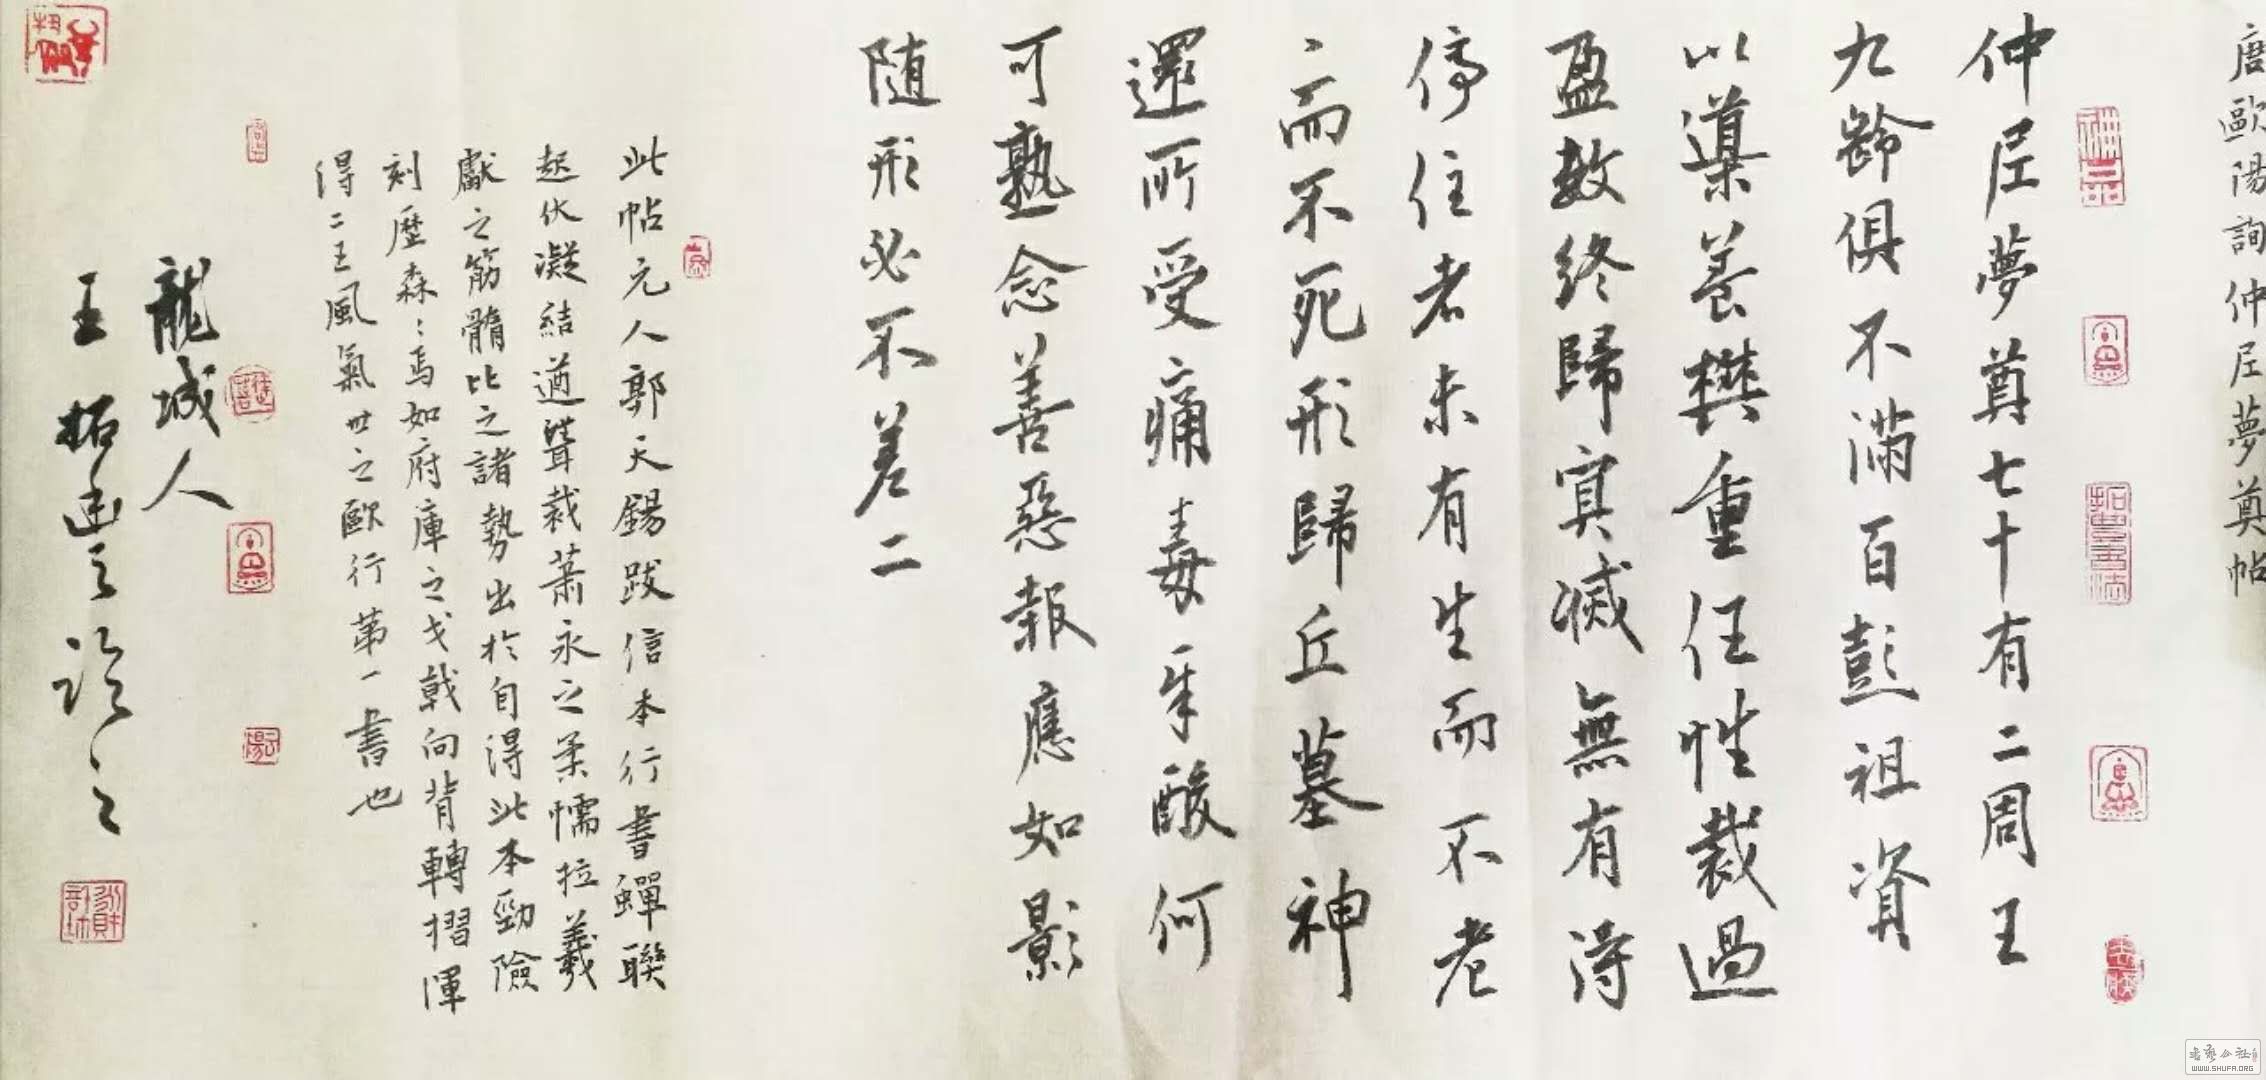 唐歐陽詢仲尼夢奠帖
仲尼夢奠七十有二周王
九齡俱不滿百彭祖資
以導養樊重任性裁過
盈數終歸冥滅無有得
停住者未有生而不老
〻而不死形歸丘墓神
還所受痛毒辛酸何
可熟念善惡報應如影
隨形必不差二
此帖元人郭天錫跋信本行書蟬聯
起伏凝結遒聳裁蕭永之柔懦拉羲
獻之筋髓比之諸勢出於自得此本勁險
刻歷森〻焉如府庫之戈戟向背轉摺渾
得二王風氣世之歐行第一書也
龍城人
王拓臨之
書藝公社
WWW.SHUFA.ORG